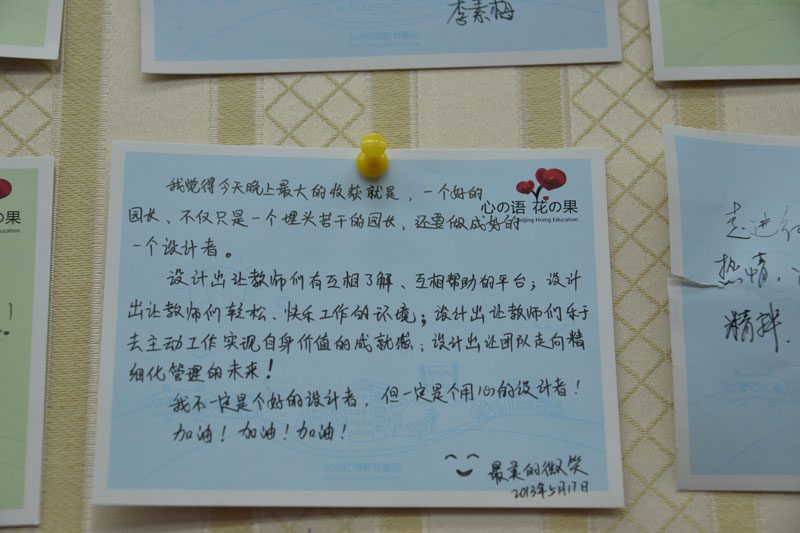 李素梅
北京红缨教育集团
の果
Education
我觉得今天晚上最大的收获就是，一个好的
园长、不仅只是一个埋头苦干的园长，还要做成好的
一个设计者。
心の语 花の果
Beijing Hoing Education
设计出让教师们有互相了解、互相帮助的平台；设计
出让教师们轻松、快乐工作的环境；设计出让教师们乐于
去主动工作实现自身价值的成就感；设计出让团队走向精
细化管理的未来！
我不一定是个好的设计者，但一定是个用心的设计者！
加油！加油！加油！
最美的微笑
2013年5月17日
北京红缨教育集团
Beijing Hoing Education Group
走进红
热情.
精